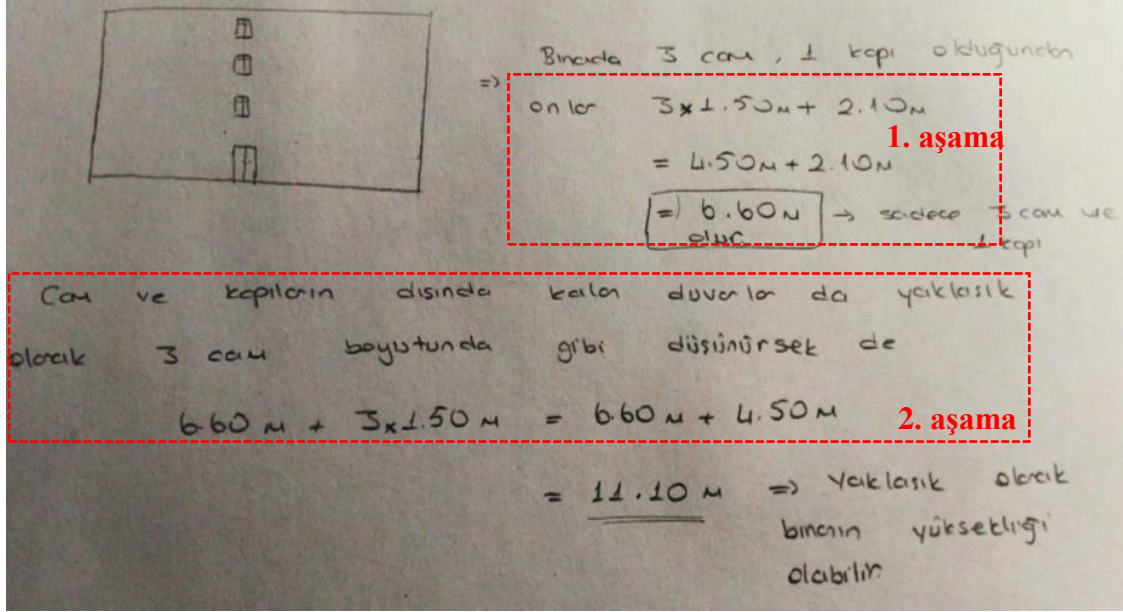 Binada 3 cam, 1 kapı olduğundan
=> onlar 3x1.50m + 2.10m
1. aşama
= 4.50m + 2.10m
=) 6.60m → sadece 3 cam ve
olur. 1 kapı
Cam ve kapıların dışında kalan duvarlar da yaklaşık
olarak 3 cam boyutunda gibi düşünürsek de
6.60 m + 3x1.50 m = 6.60 m + 4.50 m
2. aşama
= 11.10 m => Yaklaşık olarak
binanın yüksekliği
olabilir.